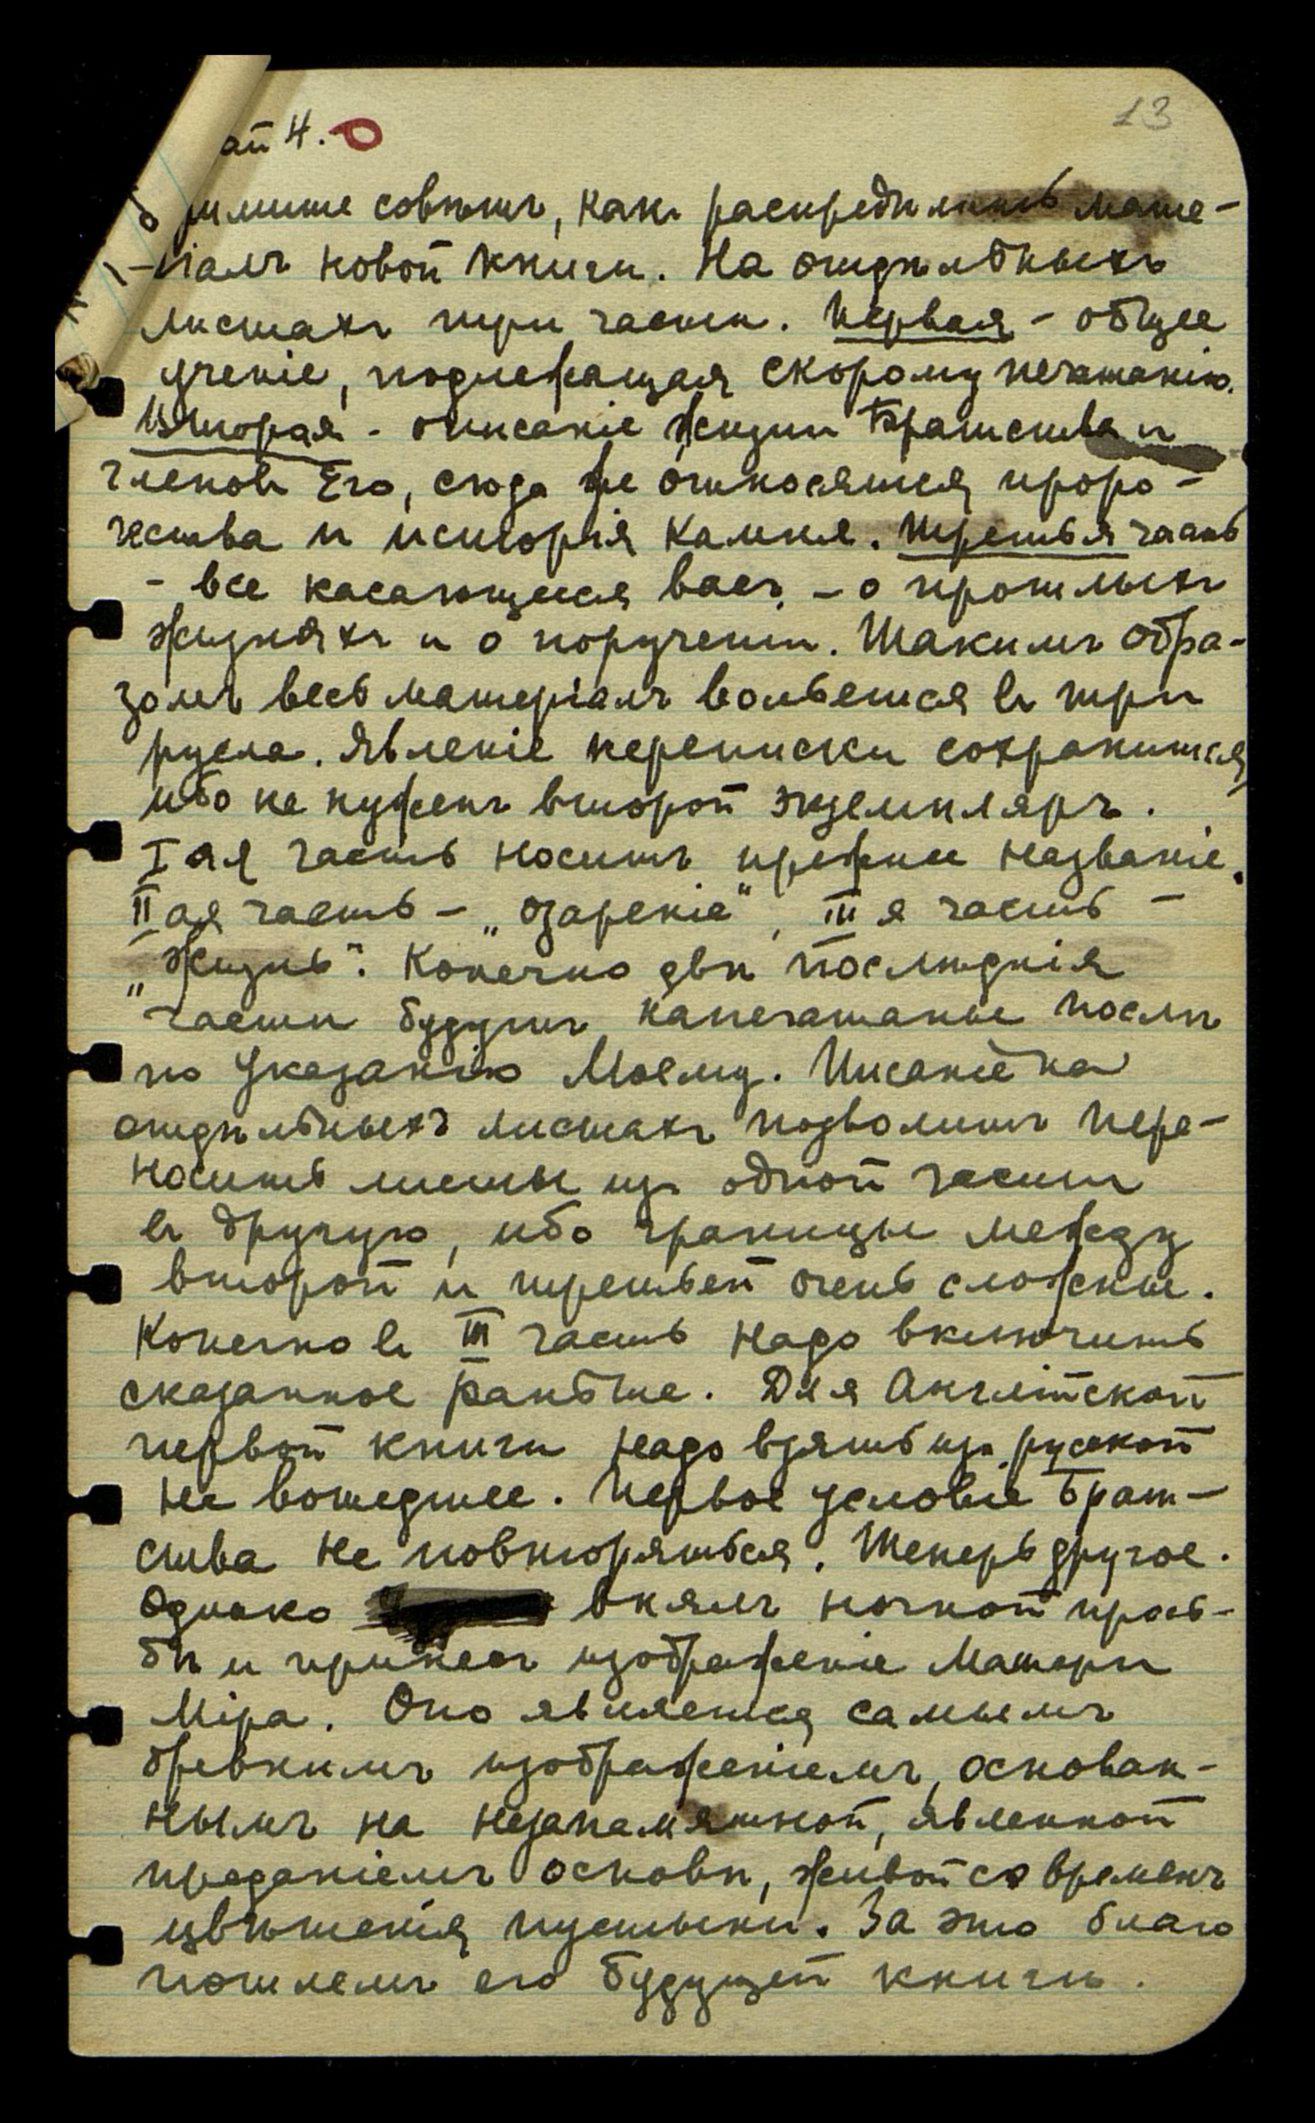 13
ай 4.
римите совѣтъ, какъ распредѣлить мате-
ріалъ новой книги. На отдѣльныхъ
листахъ три части. Первая - общее
ученіе, подлежащая скорому печатанію.
Вторая - описаніе жизни Братства и
членовъ Его, сюда же относятся проро-
чества и исторія Камня. Третья часть
- все касающееся васъ, - о прошлыхъ
жизняхъ и о порученіи. Такимъ обра-
зомъ весь матеріалъ вольется въ три
русла. Явленіе переписки сохранится,
ибо не нуженъ второй экземпляръ.
I ая часть носитъ прежнее названіе.
II ая часть - „Озареніе", III я часть -
„Жизнь". Конечно двѣ послѣднія
части будутъ напечатаны послѣ
по Указанію Моему. Писаніе на
отдѣльныхъ листахъ позволитъ пере-
носить листы изъ одной части
въ другую, ибо границы между
второй и третьей очень сложны.
Конечно въ III часть надо включить
сказанное раньше. Для Англійской
первой книги надо взять изъ русской
не вошедшее. Первое условіе Брат-
ства не повторяться. Теперь другое.
Однако внялъ ночной прось-
бѣ и принесъ изображеніе Матери
Міра. Оно является самымъ
древнимъ изображеніемъ, основан-
нымъ на незапамятной, явленной
преданіемъ основѣ, живой со временъ
цвѣтенія пустыни. За это благо
пошлемъ его будущей книгѣ.